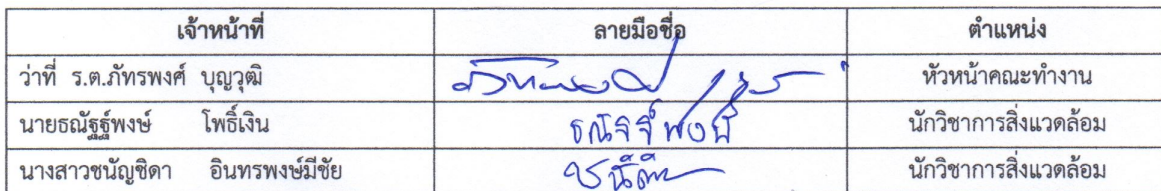 เจ้าหน้าที่ ลายมือชื่อ ตำแหน่ง
ว่าที่ ร.ต.ภัทรพงศ์ บุญวุฒิ หัวหน้าคณะทำงาน
นายธณัฐฐ์พงษ์ โพธิ์เงิน นักวิชาการสิ่งแวดล้อม
นางสาวชนัญชิดา อินทรพงษ์มีชัย นักวิชาการสิ่งแวดล้อม